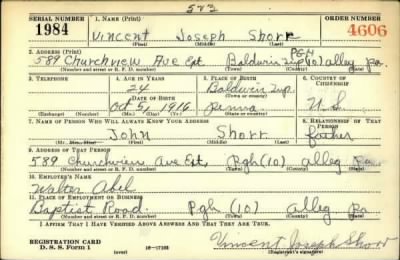 583
SERIAL NUMBER 1. NAME (Print) ORDER NUMBER
1984 Vincent Joseph Shorr 4606
(First) (Middle) (Last)
2. ADDRESS (Print)
PGH
589 Churchview Ave Ext Baldwin Twp (10) Alleg Pa
(Number and street or R. F. D. number) (Town) (County) (State)
3. TELEPHONE 4. AGE IN YEARS 5. PLACE OF BIRTH 6. COUNTRY OF CITIZENSHIP
24 Baldwin Twp.
DATE OF BIRTH (Town or county)
Oct 31 1916 Penna U.S.
(Exchange) (Number) (Mo.) (Day) (Yr.) (State or country)
7. NAME OF PERSON WHO WILL ALWAYS KNOW YOUR ADDRESS 8. RELATIONSHIP OF THAT PERSON
John Shorr father
(Mr., Mrs., Miss) (First) (Middle) (Last)
9. ADDRESS OF THAT PERSON
589 Churchview Ave Ext. Pgh (10) Alleg Pa
(Number and street or R. F. D. number) (Town) (County) (State)
10. EMPLOYER'S NAME
Walter Abel
11. PLACE OF EMPLOYMENT OR BUSINESS
Baptist Road. Pgh (10) Alleg Pa
(Number and street or R. F. D. number) (Town) (County) (State)
I AFFIRM THAT I HAVE VERIFIED ABOVE ANSWERS AND THAT THEY ARE TRUE.
REGISTRATION CARD
D. S. S. Form 1 (over) 16—17105 Vincent Joseph Shorr
(Registrant's signature)